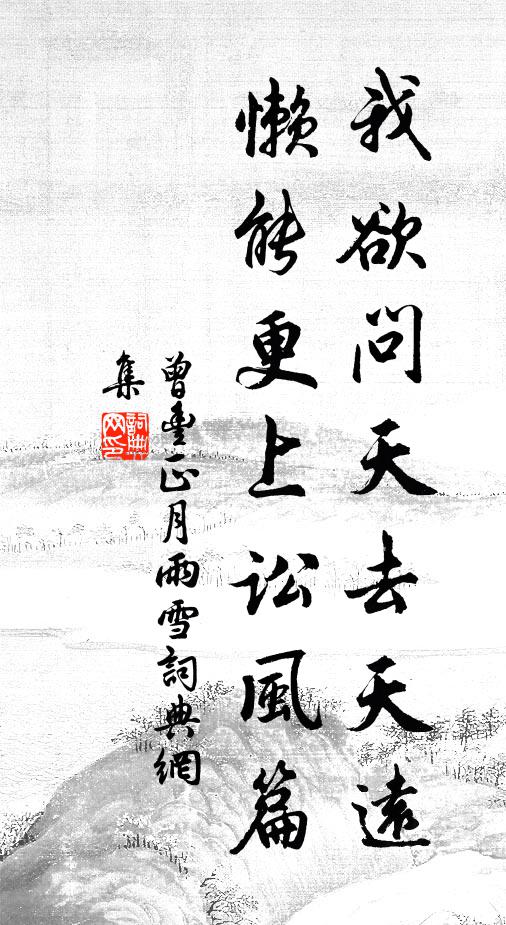 我欲問天去天遠
懶能更上訟風篇
曾豐正月雨雪詞典網
集
詞典網印